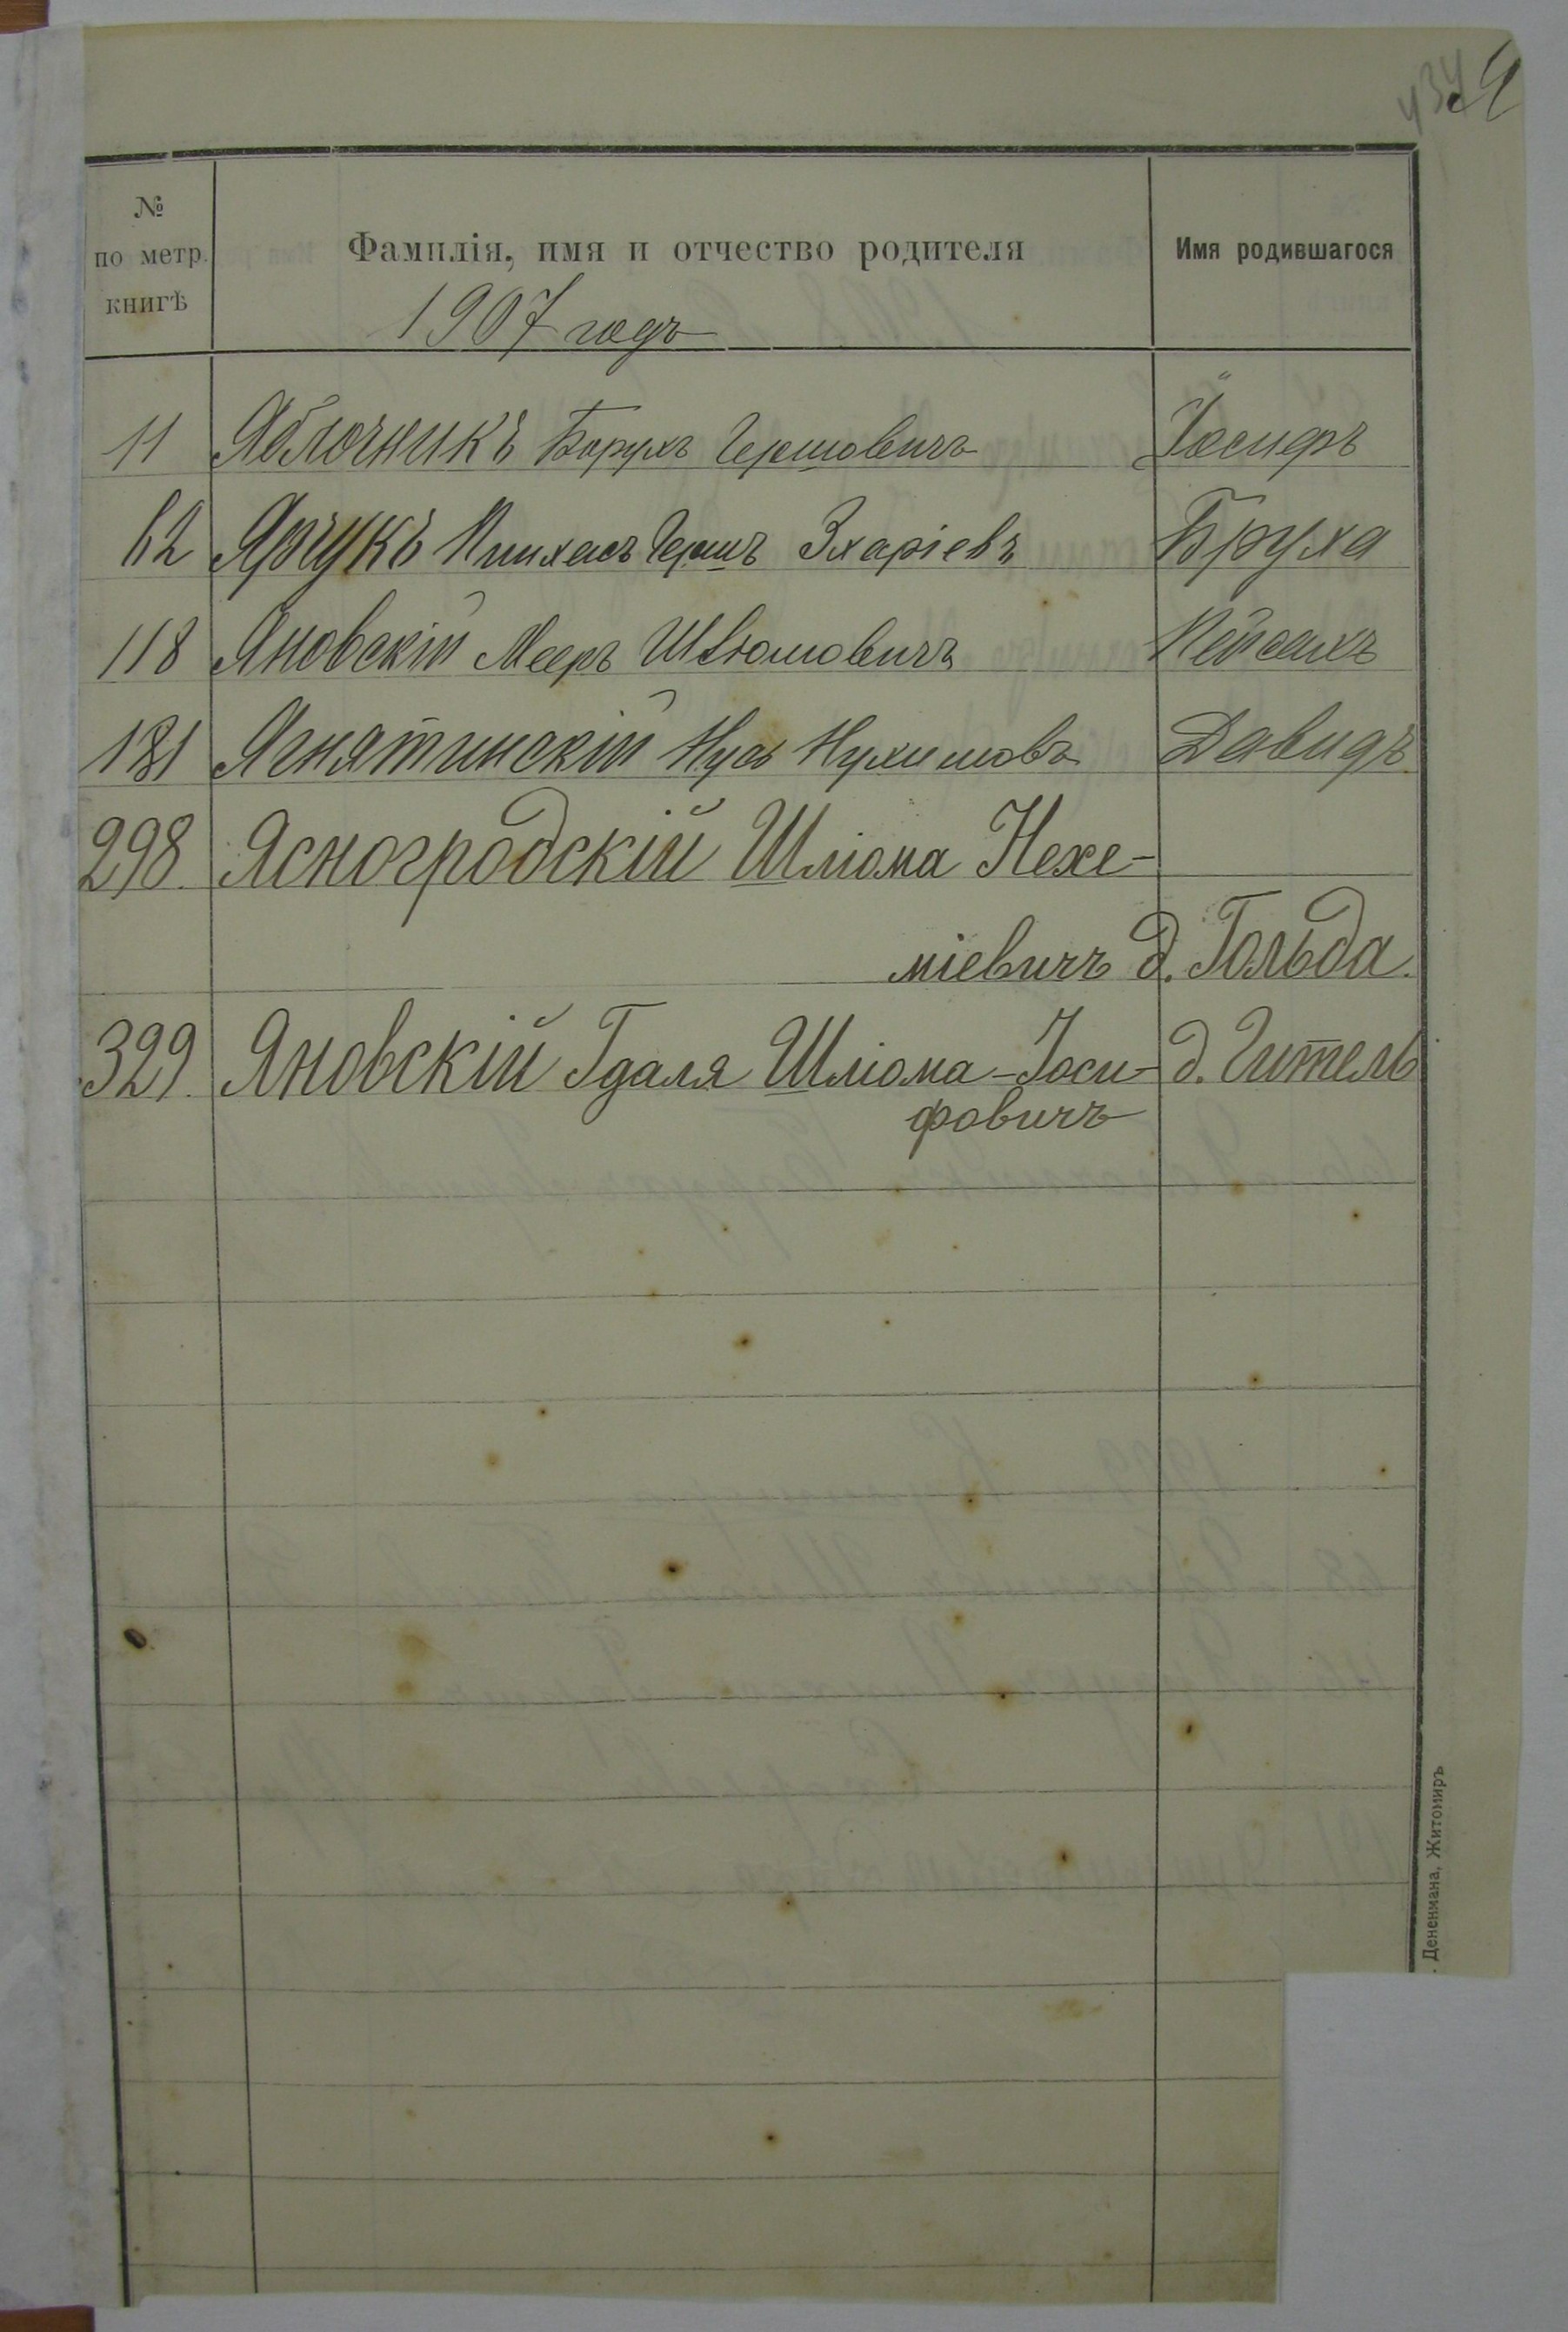 №
по метр.
книгѣ
Фамилія, имя и отчество родителя
Имя родившагося
1907 годъ
11 Яблочникъ Борухъ Гершовичъ Іосифъ
62 Ярчукъ Пинхасъ Гершъ Зхаріевъ Бруха
118 Яновскій Мееръ Шлюмовичъ Пейсахъ
181 Ягнятинскій Нусь Нухимовъ Давидъ
298. Ясногродскій Шліома Нехе-
міевичъ д. Гольда.
329. Яновскій Гдаля Шліома-Іоси- д. Гитель
фовичъ
Дененмана, Житомиръ